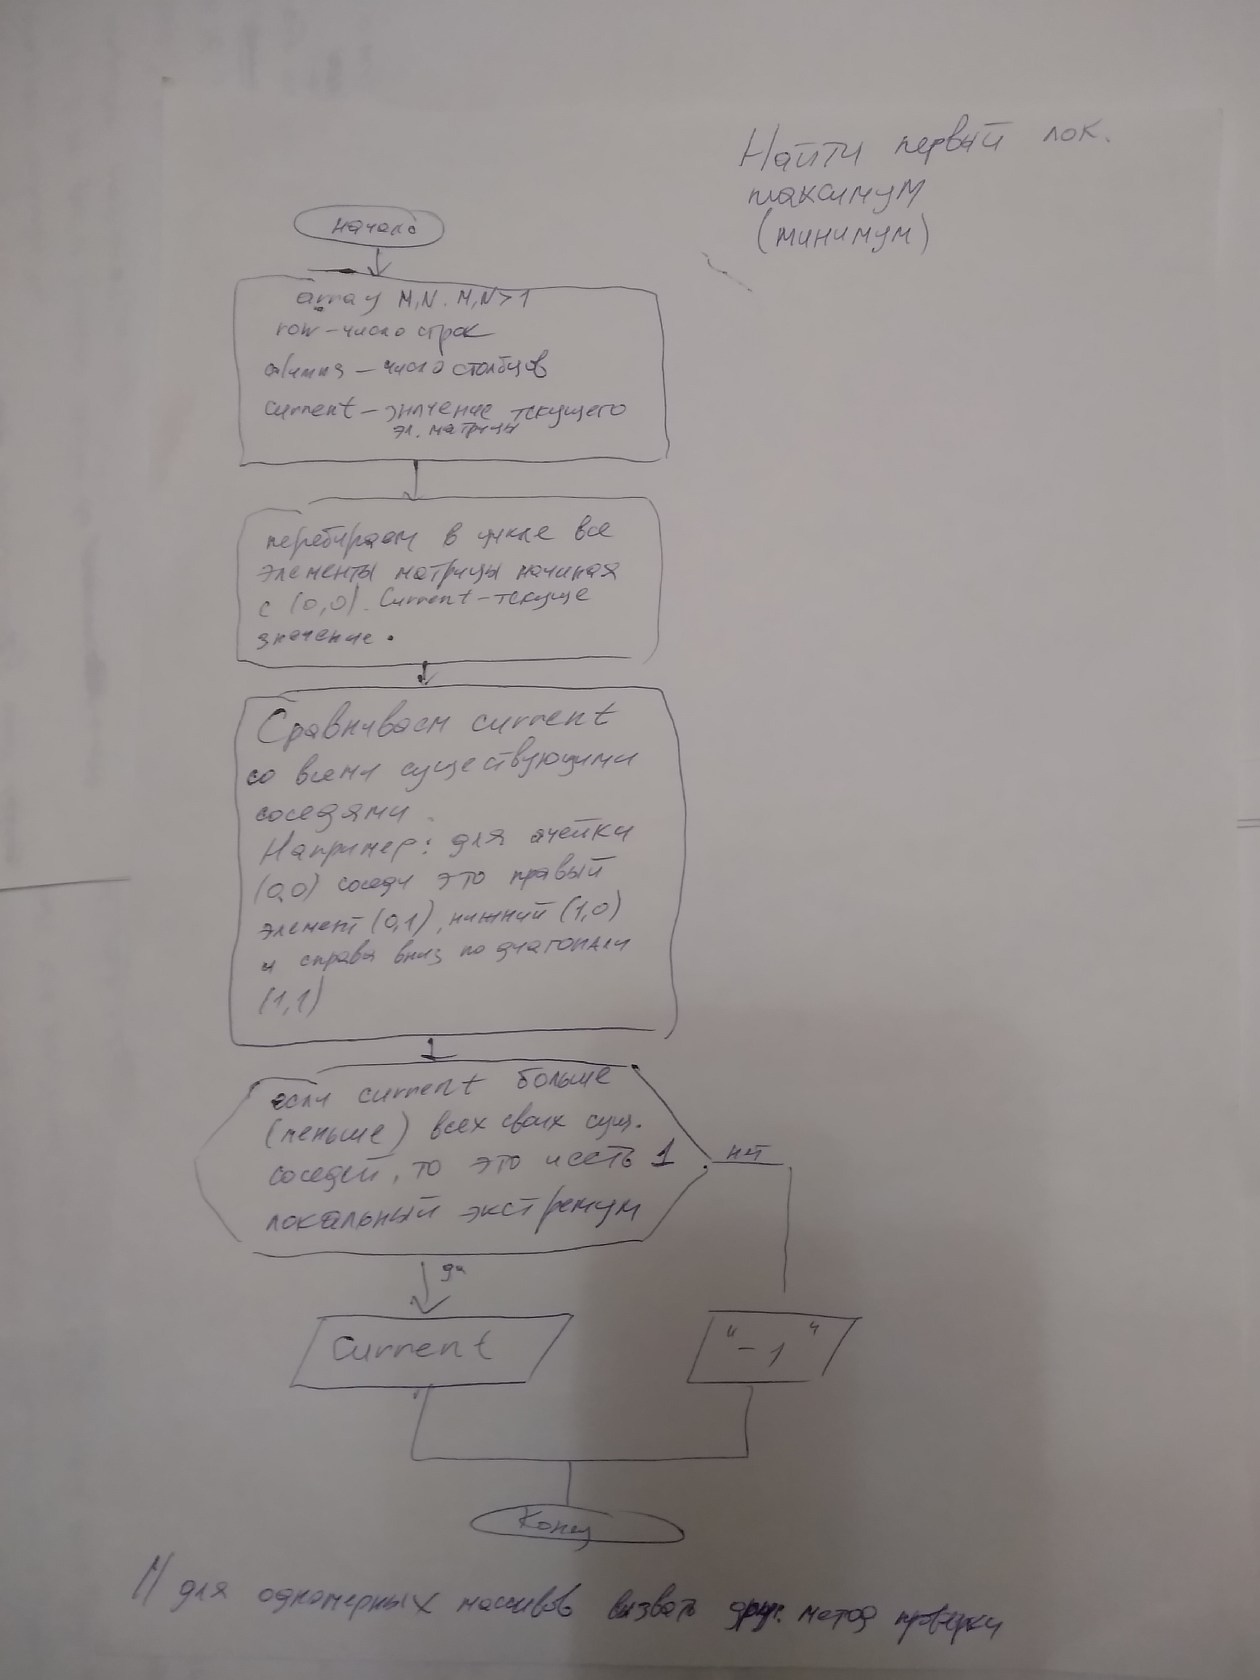 Найти первый лок.
максимум
(минимум)
начало
array M,N. M,N>1
row – число строк
columns – число столбцов
current – значение текущего
эл. матрицы
перебираем в цикле все
элементы матрицы начиная
с (0,0). Current – текуще
значение.
Сравниваем current
со всеми существующими
соседями.
Например: для ячейки
(0,0) соседи это правый
элемент (0,1), нижний (1,0)
и справа вниз по диагонали
(1,1)
если current больше
(меньше) всех своих сущ.
соседей, то это и есть 1
локальный экстремум
нет
да
Current
"-1"
Конец
// для одномерных массивов вызвать друг. метод проверки